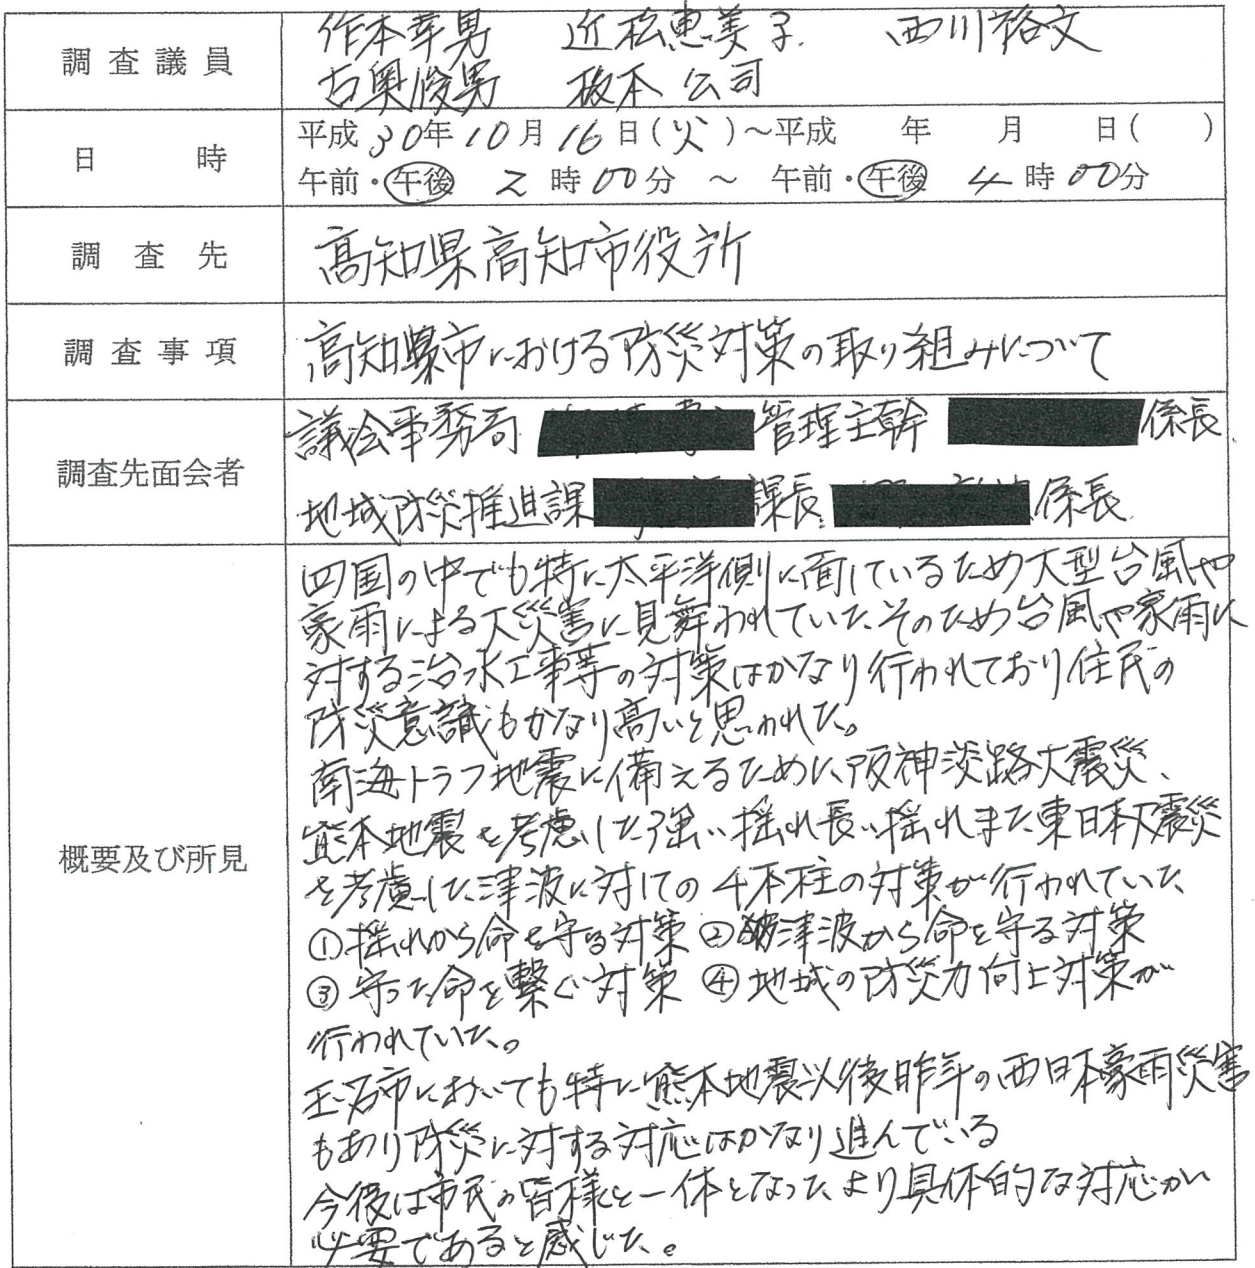 調査議員
作本幸男 近松恵美子 西川裕文
古奥俊男 坂本公司
日 時
平成30年10月16日(火)~平成 年 月 日( )
午前・午後 2時00分 ~ 午前・午後 4時00分
調査先
高知県高知市役所
調査事項
高知市における防災対策の取り組みについて
調査先面会者
議会事務局 管理主幹 係長
地域防災推進課 課長 係長
概要及び所見
四国の中でも特に太平洋側に面しているため大型台風や
豪雨による大災害に見舞われていた。そのため台風や豪雨に
対する治水工事等の対策はかなり行われており住民の
防災意識もかなり高いと思われた。
南海トラフ地震に備えるために、阪神淡路大震災、
熊本地震を考慮した強い揺れ長い揺れまた東日本大震災
を考慮した津波に対しての4本柱の対策が行われていた
①揺れから命を守る対策 ②津波から命を守る対策
③守った命を繋ぐ対策 ④地域の防災力向上対策が
行われていた。
玉名市においても特に熊本地震以後昨年の西日本豪雨災害
もあり防災に対する対応はかなり進んでいる
今後は市民の皆様と一体となったより具体的な対応が
必要であると感じた。